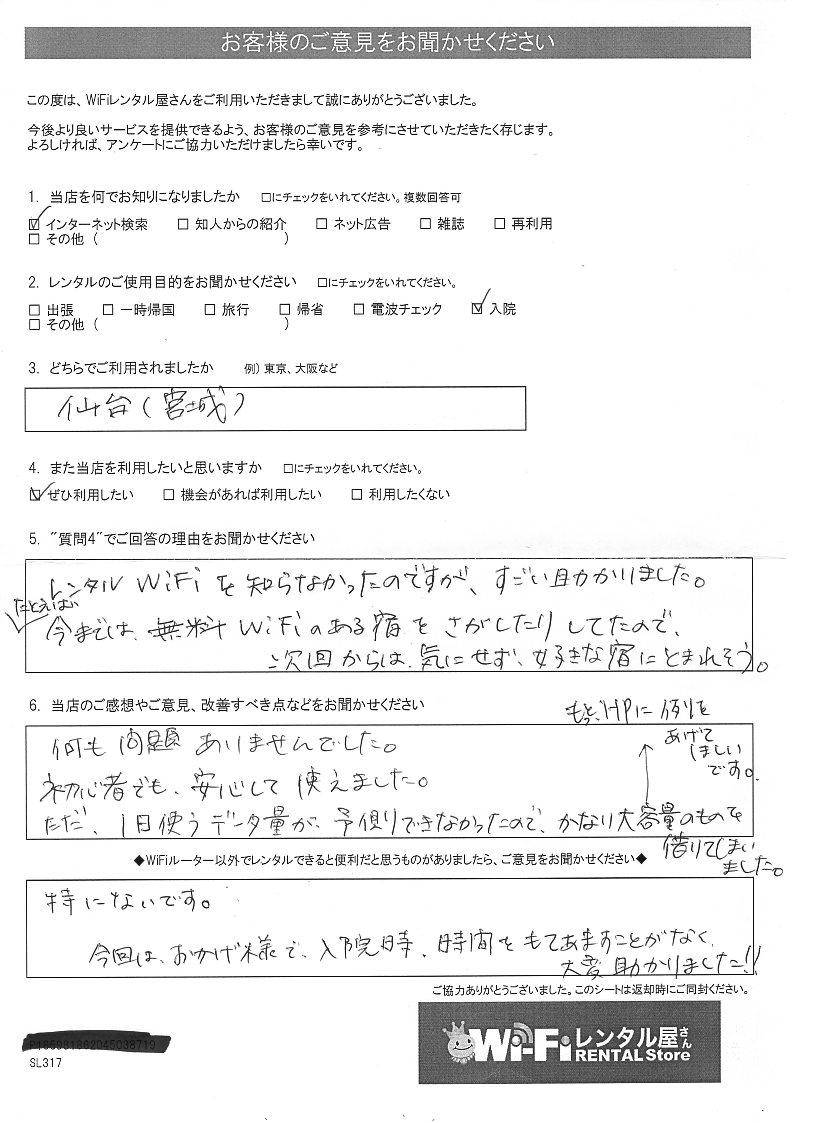 お客様のご意見をお聞かせください
この度は、WiFiレンタル屋さんをご利用いただきまして誠にありがとうございました。
今後より良いサービスを提供できるよう、お客様のご意見を参考にさせていただきたく存じます。
よろしければ、アンケートにご協力いただけましたら幸いです。
1. 当店を何でお知りになりましたか □にチェックをいれてください。複数回答可
☑ インターネット検索 □ 知人からの紹介 □ ネット広告 □ 雑誌 □ 再利用
□ その他 ( )
2. レンタルのご使用目的をお聞かせください □にチェックをいれてください。
□ 出張 □ 一時帰国 □ 旅行 □ 帰省 □ 電波チェック ☑ 入院
□ その他 ( )
3. どちらでご利用されましたか 例) 東京、大阪など
仙台(宮城)
4. また当店を利用したいと思いますか □にチェックをいれてください。
☑ ぜひ利用したい □ 機会があれば利用したい □ 利用したくない
5. "質問4"でご回答の理由をお聞かせください
レンタル WiFi を知らなかったのですが、すごい助かりました。
たとえば
今までは、無料 WiFi のある宿をさがしたりしてたので、
次回からは、気にせず、好きな宿にとまれそう。
6. 当店のご感想やご意見、改善すべき点などをお聞かせください
もっと、HPに例を
あげて
ほしい
です。
何も問題ありませんでした。
初心者でも、安心して使えました。
ただ、1日使うデータ量が、予測できなかったので、かなり大容量のものを
借りてしまい
ました。
◆WiFiルーター以外でレンタルできると便利だと思うものがありましたら、ご意見をお聞かせください◆
特にないです。
今回は、おかげ様で、入院時、時間をもてあますことがなく、
大変助かりました!!
ご協力ありがとうございました。このシートは返却時にご同封ください。
SL317
Wi-Fiレンタル屋さん
RENTAL Store